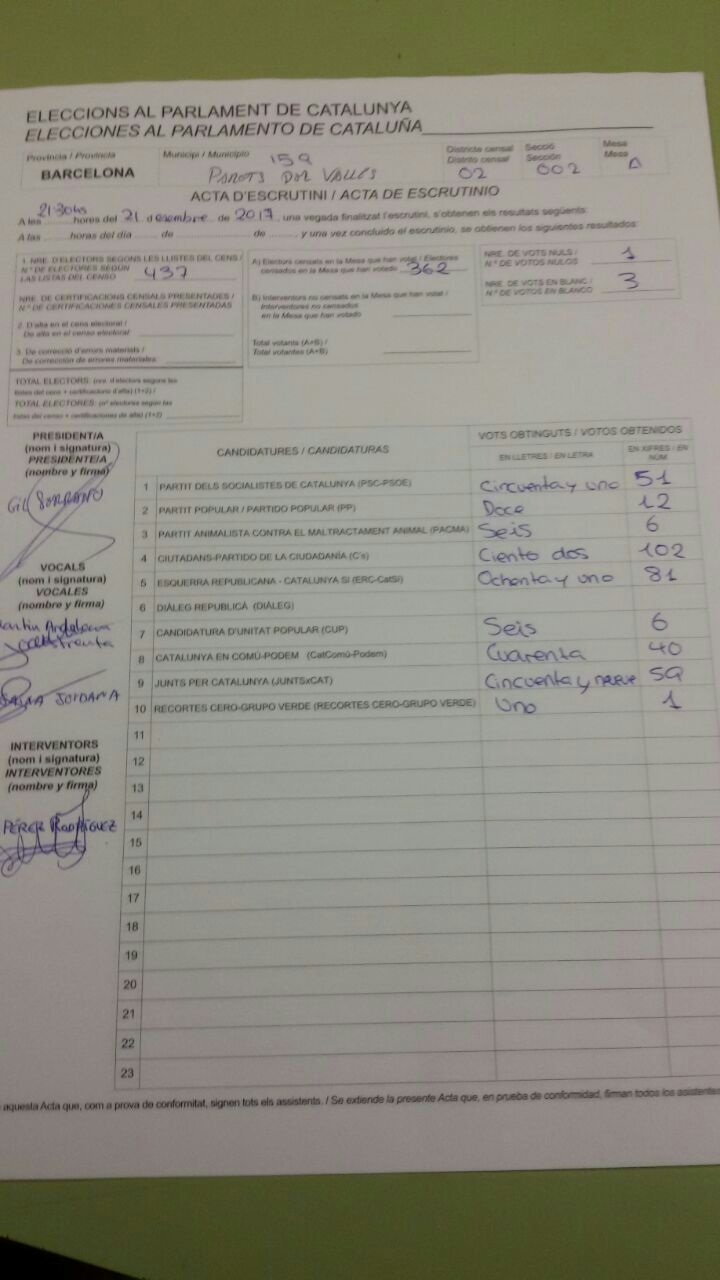 ELECCIONS AL PARLAMENT DE CATALUNYA
ELECCIONES AL PARLAMENTO DE CATALUÑA
Província / Provincia
BARCELONA
Municipi / Municipio
159
PARETS DEL VALLES
Districte censal
Distrito censal
02
Secció
Sección
002
Mesa
Mesa
A
ACTA D'ESCRUTINI / ACTA DE ESCRUTINIO
A les 21:30hs hores del 21 desembre de 2017, una vegada finalitzat l'escrutini, s'obtenen els resultats següents:
A las ........ horas del día ....... de ............... de ........ , y una vez concluido el escrutinio, se obtienen los siguientes resultados:
1. NRE. D'ELECTORS SEGONS LES LLISTES DEL CENS /
N.º DE ELECTORES SEGÚN
LAS LISTAS DEL CENSO 437
NRE. DE CERTIFICACIONS CENSALS PRESENTADES /
N.º DE CERTIFICACIONES CENSALES PRESENTADAS
2. D'alta en el cens electoral /
De alta en el censo electoral:
3. De correcció d'errors materials /
De corrección de errores materiales:
TOTAL ELECTORS: (nre. d'electors segons les
llistes del cens + certificacions d'alta) (1+2) /
TOTAL ELECTORES: (nº electores según las
listas del censo + certificaciones de alta) (1+2)
A) Electors censats en la Mesa que han votat / Electores
censados en la Mesa que han votado 362
B) Interventors no censats en la Mesa que han votat /
Interventores no censados
en la Mesa que han votado
Total votants (A+B) /
Total votantes (A+B)
NRE. DE VOTS NULS /
N.º DE VOTOS NULOS 1
NRE. DE VOTS EN BLANC /
N.º DE VOTOS EN BLANCO 3
PRESIDENT/A
(nom i signatura)
PRESIDENTE/A
(nombre y firma)
VOCALS
(nom i signatura)
VOCALES
(nombre y firma)
INTERVENTORS
(nom i signatura)
INTERVENTORES
(nombre y firma)
PÉREZ RODRÍGUEZ
CANDIDATURES / CANDIDATURAS
VOTS OBTINGUTS / VOTOS OBTENIDOS
EN LLETRES / EN LETRA
EN XIFRES / EN NÚM
1 PARTIT DELS SOCIALISTES DE CATALUNYA (PSC-PSOE) Cincuenta y uno 51
2 PARTIT POPULAR / PARTIDO POPULAR (PP) Doce 12
3 PARTIT ANIMALISTA CONTRA EL MALTRACTAMENT ANIMAL (PACMA) Seis 6
4 CIUTADANS-PARTIDO DE LA CIUDADANÍA (C's) Ciento dos 102
5 ESQUERRA REPUBLICANA - CATALUNYA SÍ (ERC-CatSí) Ochenta y uno 81
6 DIÀLEG REPUBLICÀ (DIÀLEG)
7 CANDIDATURA D'UNITAT POPULAR (CUP) Seis 6
8 CATALUNYA EN COMÚ-PODEM (CatComú-Podem) Cuarenta 40
9 JUNTS PER CATALUNYA (JUNTSxCAT) Cincuenta y nueve 59
10 RECORTES CERO-GRUPO VERDE (RECORTES CERO-GRUPO VERDE) Uno 1
11
12
13
14
15
16
17
18
19
20
21
22
23
aquesta Acta que, com a prova de conformitat, signen tots els assistents. / Se extiende la presente Acta que, en prueba de conformidad, firman todos los asistentes